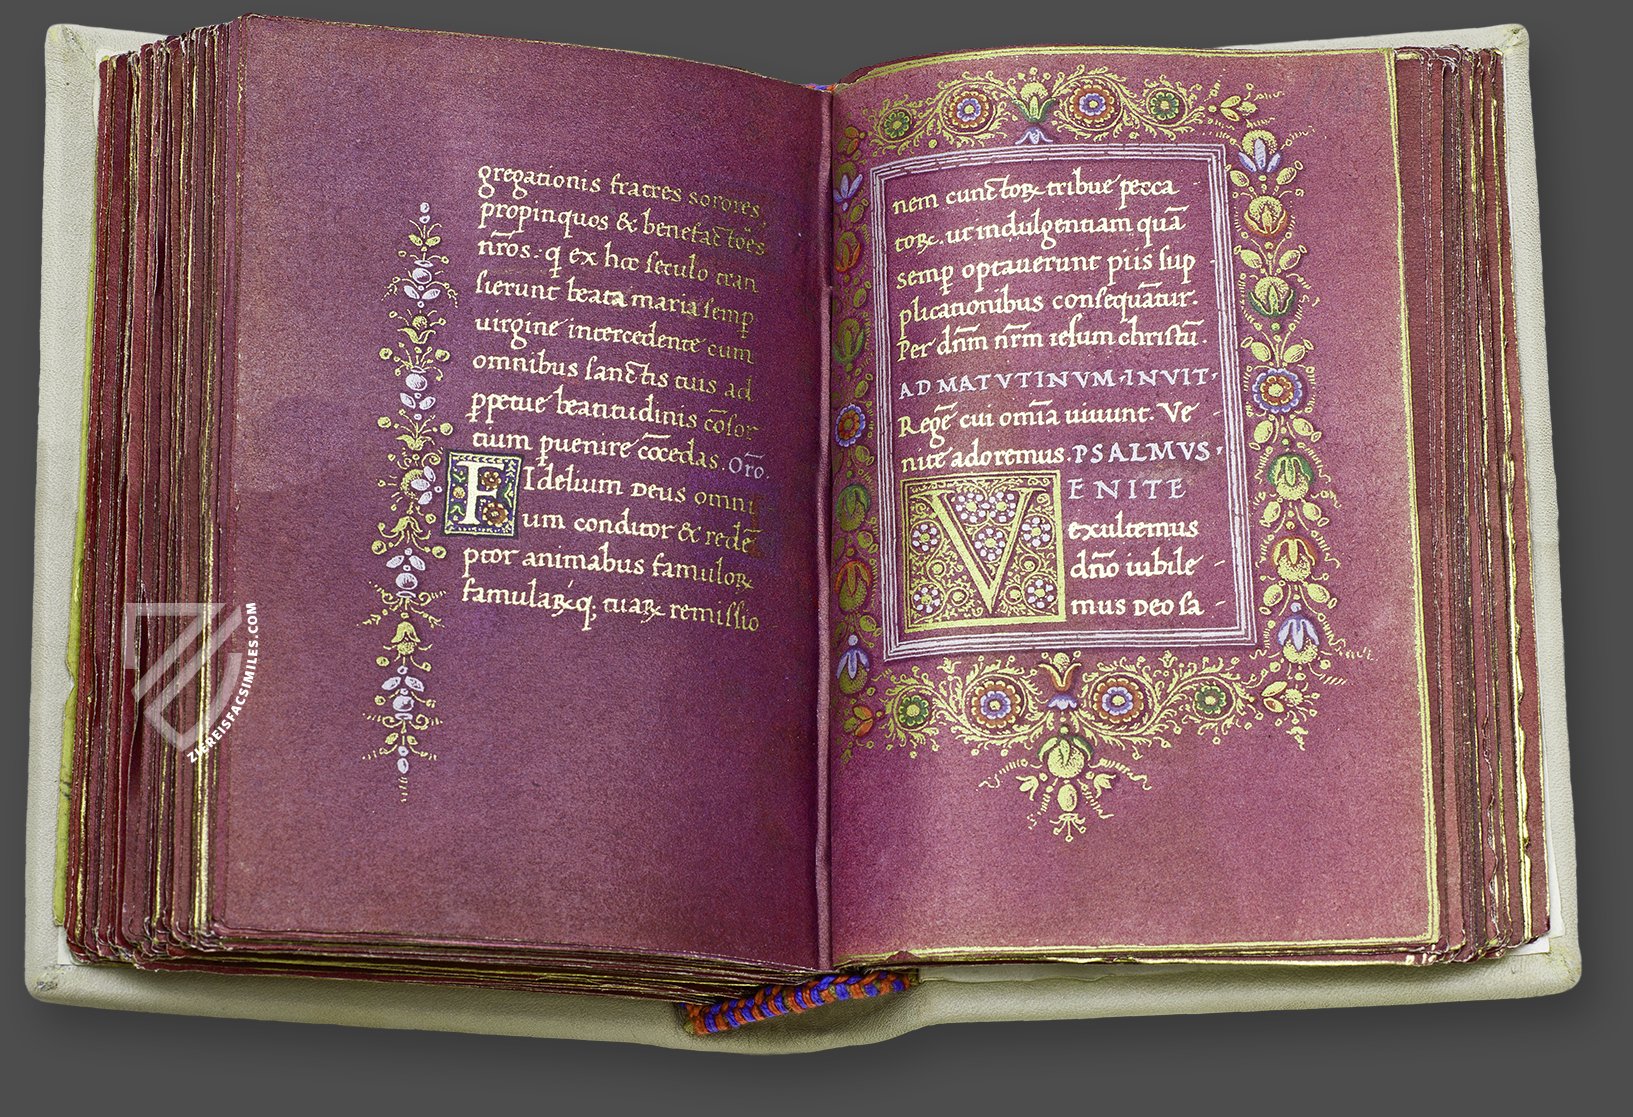 gregationis fratres sorores,
propinquos & benefactōes
nr̄os: q̄ ex hoc seculo tran
sierunt beata maria semp̱
uirgine intercedente cum
omnibus sanctis tuis ad
ꝑpetue beatitudinis cōsor
tium ꝑuenire cōcedas. Or̄o.
FIdelium Deus omni
um conditor & redē
ptor animabus famuloꝝ
famulaꝝq; tuaꝝ remissio
nem cunctoꝝ tribue pecca
toꝝ. ut indulgentiam quā
semp̱ optauerunt piis sup
plicationibus consequātur.
Per dn̄m nr̄m iesum christū.
AD MATVTINVM·INVIT·
Regē cui om̄ia uiuunt. Ve
nite adoremus. PSALMVS·
VENITE
exultemus
dn̄o iubile
mus Deo sa
ZIEREISFACSIMILES.COM